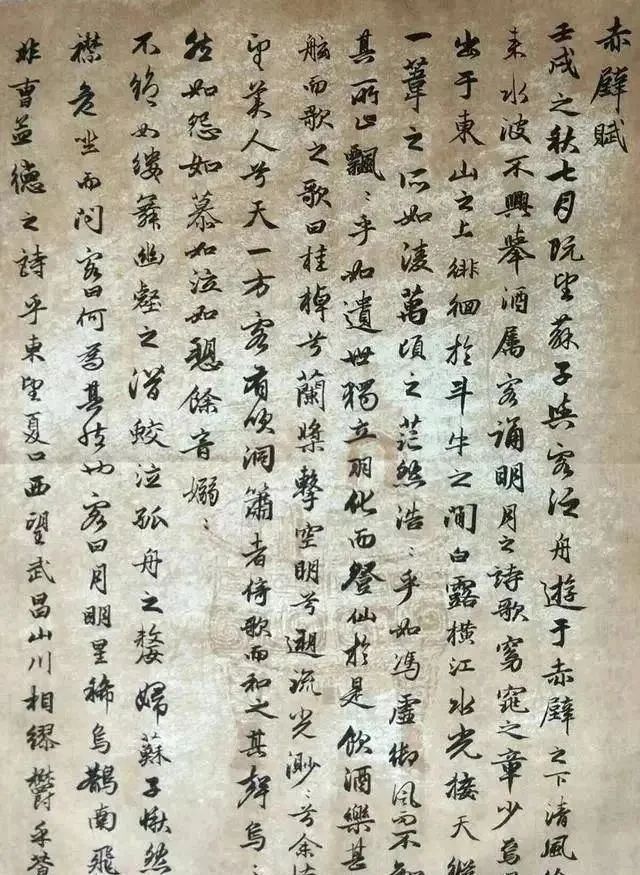 赤壁賦
壬戌之秋七月既望蘇子與客泛舟遊于赤壁之下清風
來水波不興舉酒属客誦明月之詩歌窈窕之章少焉
出于東山之上徘徊於斗牛之間白露橫江水光接天縱
一葦之所如淩萬頃之茫然浩〻乎如馮虛御風而不知
其所止飄〻乎如遺世獨立羽化而登仙於是飲酒樂甚
舷而歌之歌曰桂棹兮蘭槳擊空明兮遡流光渺〻兮余懷
望美人兮天一方客有吹洞簫者倚歌而和之其聲烏〻
然如怨如慕如泣如愬餘音嫋〻
不絕如縷舞幽壑之潛蛟泣孤舟之嫠婦蘇子愀然
襟危坐而問客曰何為其然也客曰月明星稀烏鵲南飛
非曹孟德之詩乎東望夏口西望武昌山川相繆鬱乎蒼